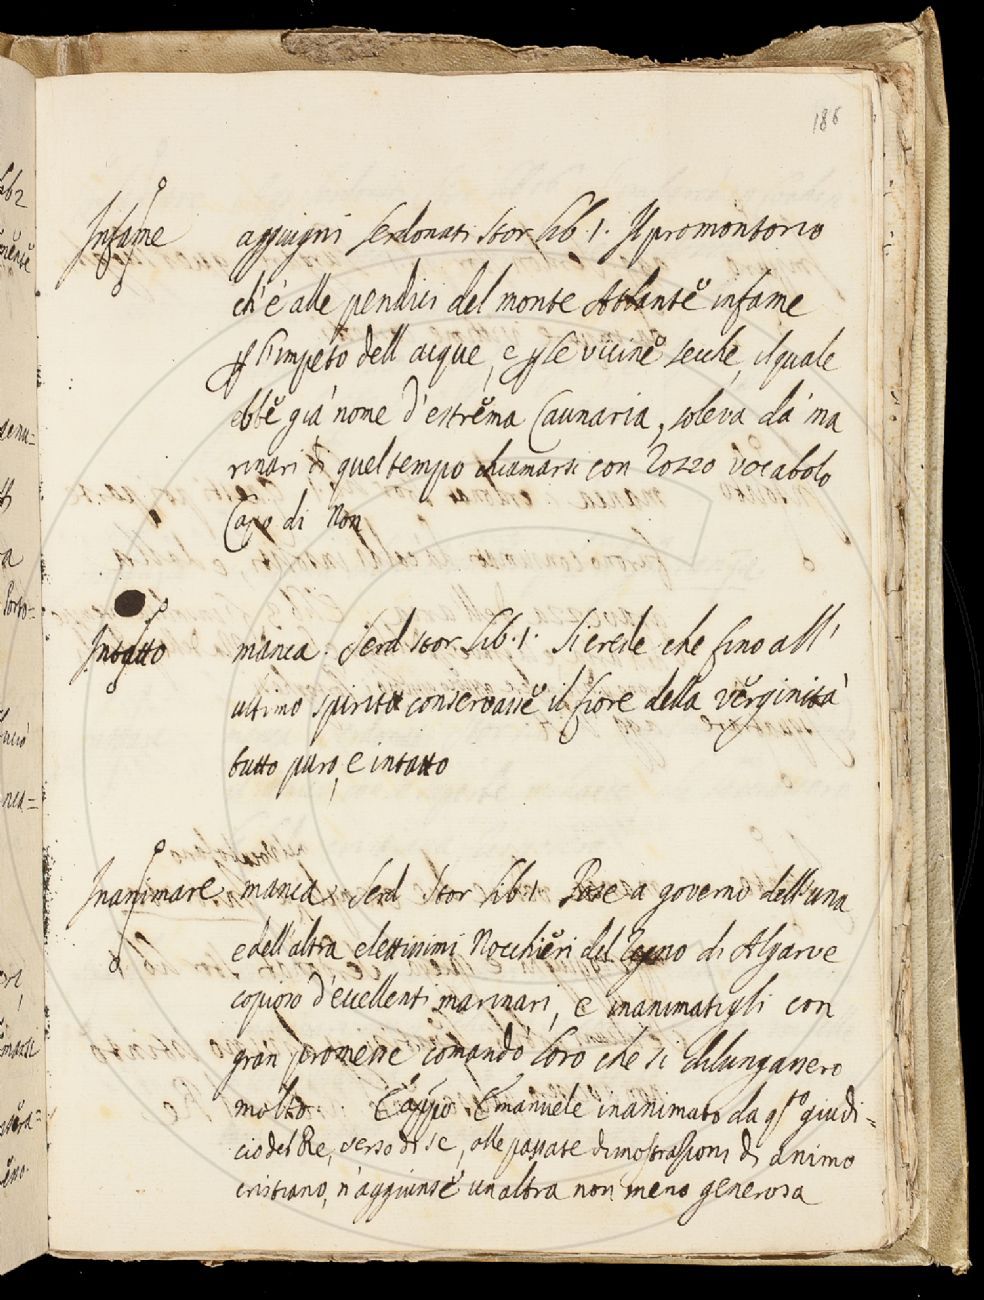 186
Infame aggiugni Serdonati Stor lib 1. Il promontorio
ch'é alle pendici del monte Atlante infame
p l'impeto dell acque, e p le vicine secche, il quale
ebbe giá nome d'estrema Caunaria, soleva da' ma
rinari di quel tempo chiamarsi con rozzo vocabolo
Capo di Non
Intatto manca. Serd stor. lib. 1. Si crede che fino all'
ultimo spirito conservasse il fiore della verginitá
tutto puro, e intatto
Inanimare manca Serd Stor lib 1 Pose a governo dell'una
e dell'altra elettissimi Nocchieri del Regno di Algarve
copioso d'eccellenti marinari, e inanimatigli con
gran promesse comandó loro che si dilungassero
molto. E appo. Emanuele inanimato da qsto giudi-
cio del Re, verso di se, alle passate dimostrazioni di animo
cristiano, n'aggiunse un altra non meno generosa